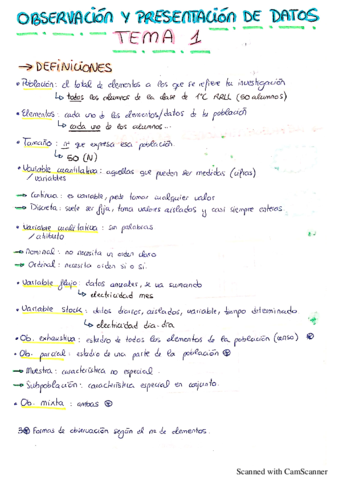 OBSERVACIÓN Y PRESENTACIÓN DE DATOS
TEMA 1
→ DEFINICIONES
• Población: el total de elementos a los que se refiere tu investigación
↳ todos los alumnos de la clase de 1ºC RRLL (50 alumnos)
• Elementos: cada uno de los elementos/datos de tu población
↳ cada uno de los alumnos...
• Tamaño: nº que expresa esa población
↳ 50 (N)
• Variable cuantitativa: aquellas que pueden ser medidas (cifras)
/ variables
→ Continua: es variable, puede tomar cualquier valor
→ Discreta: suele ser fija, toma valores aislados y casi siempre enteros.
• Variable cualitativa: son palabras
/ atributo
→ Nominal: no necesita un orden claro
→ Ordinal: necesita orden si o si.
• Variable flujo: datos anuales, se va sumando
↳ electricidad mes
• Variable Stock: datos diarios, aislados, variable, tiempo determinado
↳ electricidad dia-dia
• Ob. exhaustiva: estudio de todos los elementos de la población (censo)
• Ob. parcial: estudio de una parte de la población
→ Muestra: característica no especial
→ Subpoblación: característica especial en conjunto.
• Ob. mixta: ambas
3 Formas de observación según el nº de elementos.
Scanned with CamScanner